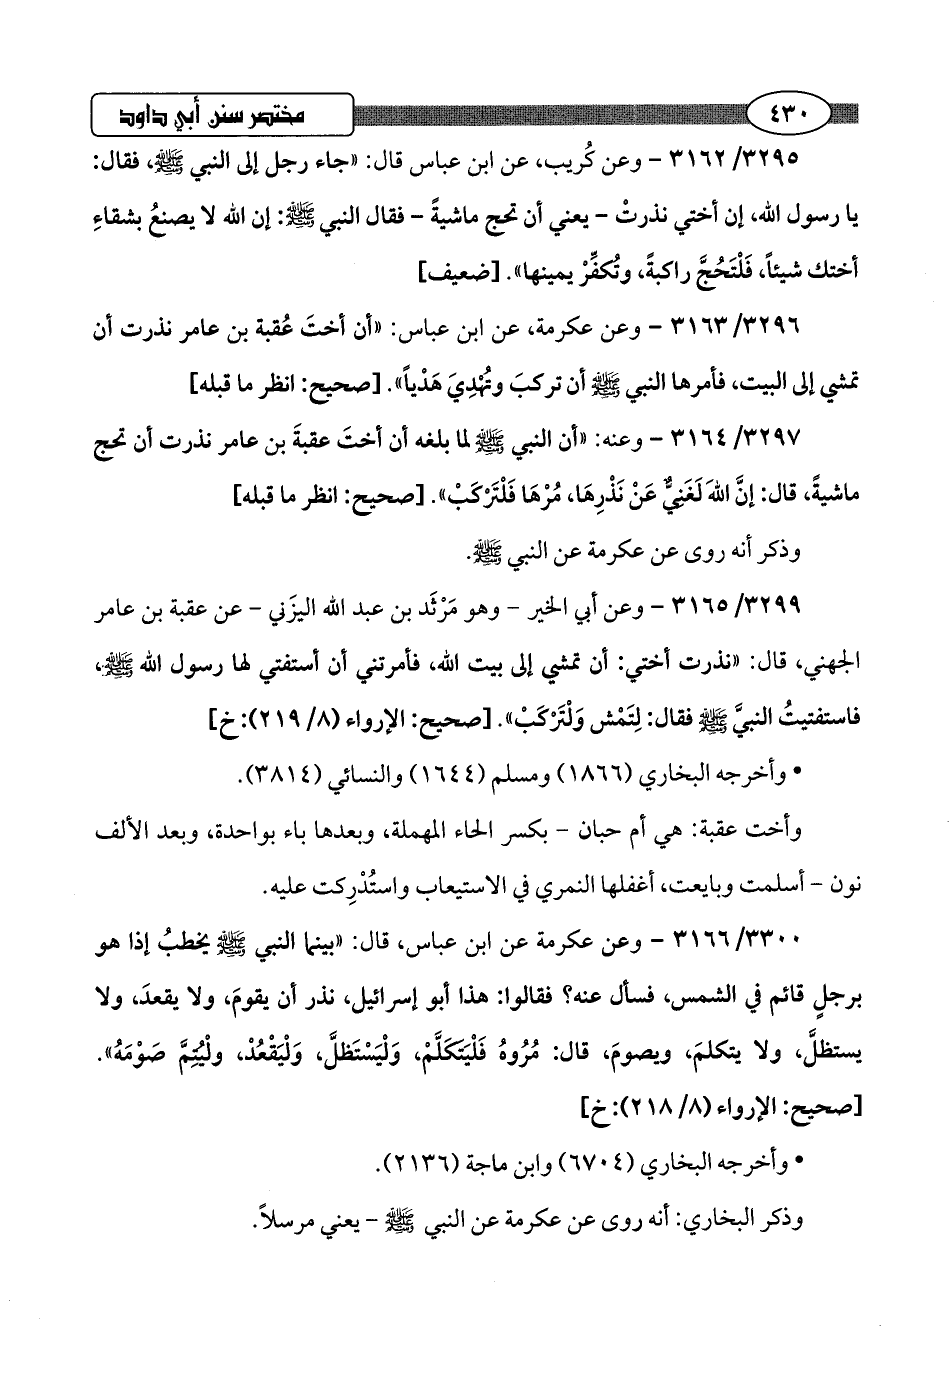 ٤٣٠ مختصر سنن أبي داود
٣١٦٢/٣٢٩٥ - وعن كُريب، عن ابن عباس قال: «جاء رجل إلى النبي ﷺ، فقال:
يا رسول الله، إن أختي نذرتْ - يعني أن تحج ماشيةً - فقال النبي ﷺ: إن الله لا يصنعُ بشقاءِ
أختك شيئاً، فَلْتَحُجَّ راكبةً، وتُكفِّرْ يمينها». [ضعيف]
٣١٦٣/٣٢٩٦ - وعن عكرمة، عن ابن عباس: «أن أختَ عُقبة بن عامر نذرت أن
تمشي إلى البيت، فأمرها النبي ﷺ أن تركبَ وتُهْدِيَ هَدْياً». [صحيح: انظر ما قبله]
٣١٦٤/٣٢٩٧ - وعنه: «أن النبي ﷺ لما بلغه أن أختَ عقبةَ بن عامر نذرت أن تحج
ماشيةً، قال: إنَّ اللهَ لَغَنِيٌّ عَنْ نَذْرِهَا، مُرْهَا فَلْتَرْكَبْ». [صحيح: انظر ما قبله]
وذكر أنه روى عن عكرمة عن النبي ﷺ.
٣١٦٥/٣٢٩٩ - وعن أبي الخير - وهو مَرْثَد بن عبد الله اليزَني - عن عقبة بن عامر
الجهني، قال: «نذرت أختي: أن تمشي إلى بيت الله، فأمرتني أن أستفتي لها رسول الله ﷺ،
فاستفتيتُ النبيَّ ﷺ فقال: لِتَمْش وَلْتَرْكَبْ». [صحيح: الإرواء (٨/ ٢١٩): خ]
• وأخرجه البخاري (١٨٦٦) ومسلم (١٦٤٤) والنسائي (٣٨١٤).
وأخت عقبة: هي أم حبان - بكسر الحاء المهملة، وبعدها باء بواحدة، وبعد الألف
نون - أسلمت وبايعت، أغفلها النمري في الاستيعاب واستُدْرِكت عليه.
٣١٦٦/٣٣٠٠ - وعن عكرمة عن ابن عباس، قال: «بينما النبي ﷺ يخطبُ إذا هو
برجلٍ قائم في الشمس، فسأل عنه؟ فقالوا: هذا أبو إسرائيل، نذر أن يقومَ، ولا يقعدَ، ولا
يستظلَّ، ولا يتكلمَ، ويصومَ، قال: مُرُوهُ فَلْيَتَكَلَّمْ، وَلْيَسْتَظلَّ، وَلْيَقْعُدْ، ولْيُتِمَّ صَوْمَهُ».
[صحيح: الإرواء (٨/ ٢١٨): خ]
• وأخرجه البخاري (٦٧٠٤) وابن ماجة (٢١٣٦).
وذكر البخاري: أنه روى عن عكرمة عن النبي ﷺ - يعني مرسلاً.